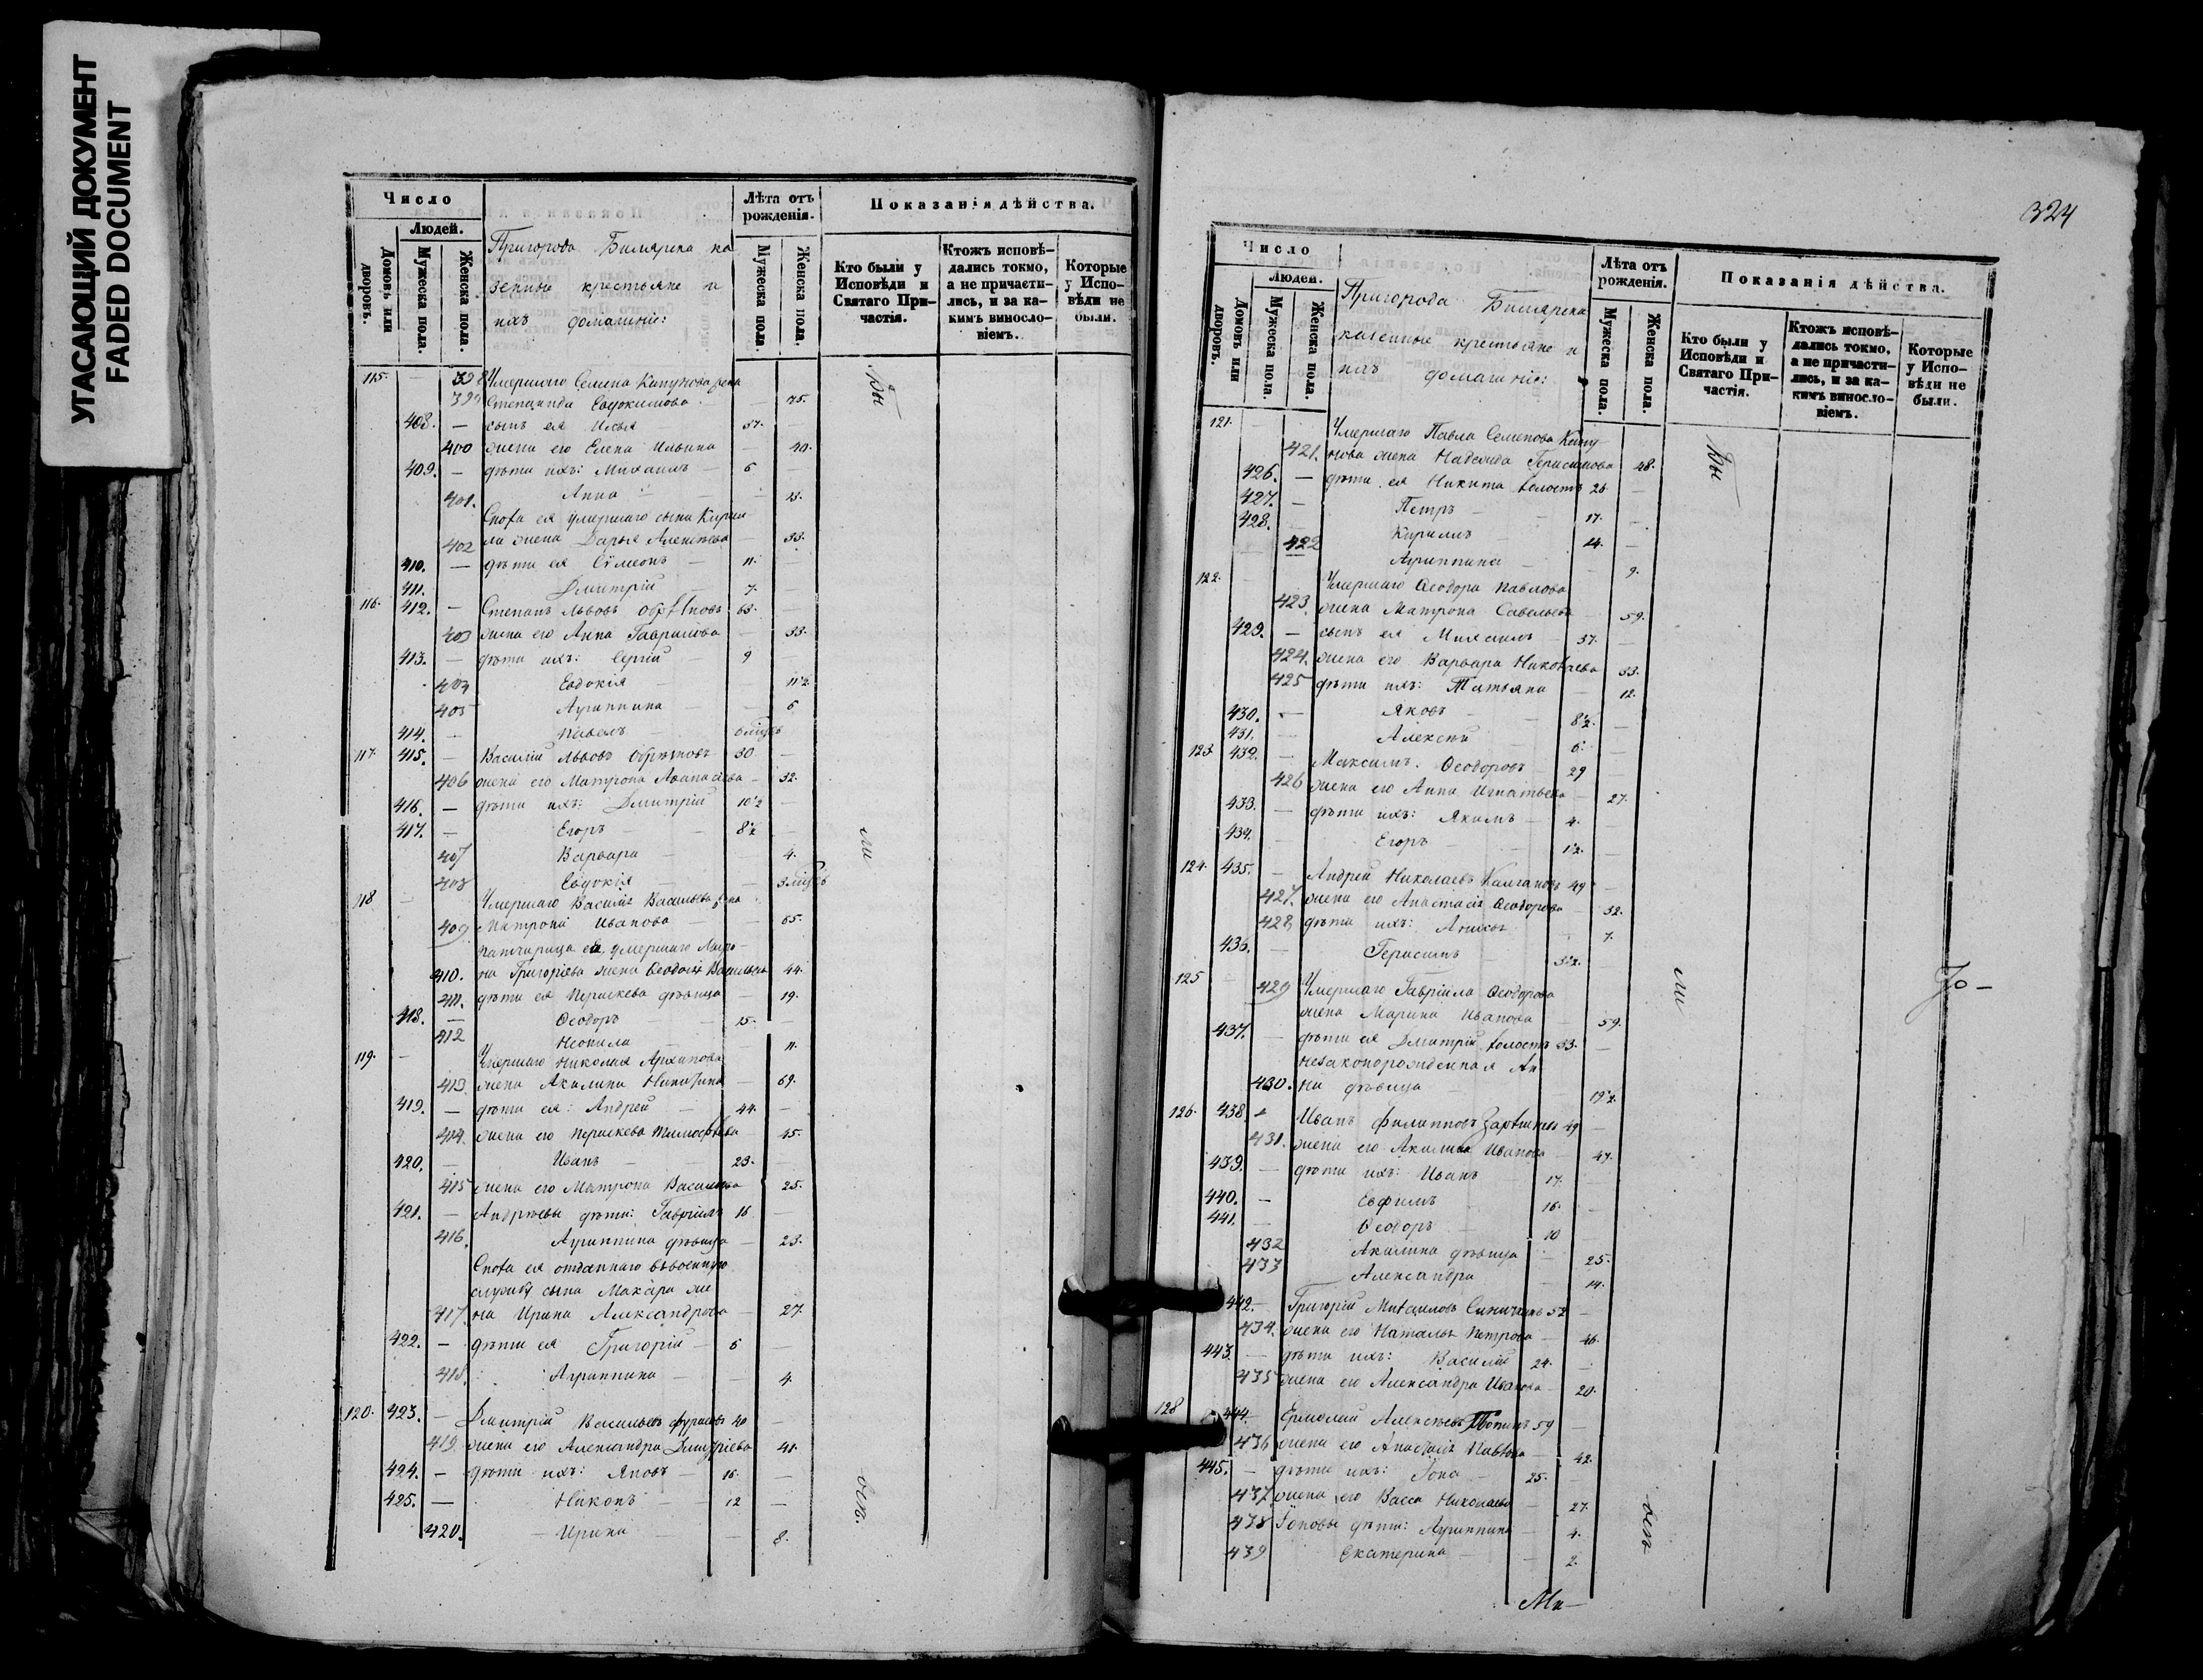 УГАСАЮЩИЙ ДОКУМЕНТ
FADED DOCUMENT
Число
Людей.
Домовъ или дворовъ.
Мужеска пола.
Женска пола.
Пригорода Билярска ка
зенные крестьяне и
ихъ домашніе:
Лѣта отъ рожденія.
Мужеска пола.
Женска пола.
Показанія дѣйства.
Кто были у Исповѣди и Святаго При-частія.
Ктожъ исповѣ-дались токмо, а не причасти-лись, и за ка-кимъ винословіемъ.
Которые у Испо-вѣди не были.
115. — 398 Умершаго Семена жена
399 Степанида Евдокимова — 75.
408. — сынъ ея Илья 57. —
400 жена его Елена Ильина — 40.
409. — дѣти ихъ: Михаилъ — 6 —
401. Анна — 13.
Сноха ея умершаго сына Кирил
402 ла жена Дарья Алексѣева — 33.
410. — дѣти ея Сѵмеонъ — 11. —
411. Дмитрій 7. —
116. 412. — Степанъ Львовъ 63. —
403 жена его Анна Гаврилова — 33.
413. — дѣти ихъ: Сергій — 9 —
404 Евдокія — 11½
405 Агриппина — 6
414. — Павелъ —
117. 415. — Василій Львовъ 30 —
406 жена его Матрона Аѳанасьева — 32.
416. — дѣти ихъ: Дмитрій 10½ —
417. — Егоръ — 8½ —
407 Варвара — 4.
408 Евдокія —
118 — Умершаго Василья Васильева жена
409 Матрона Иванова 65.
410. на Григоріева жена Ѳеодосія Васильева 44.
411. дѣти ея Параскева дѣвица — 19.
418. — Ѳеодоръ — 15. —
412 Неонила — 11.
119. — Умершаго Николая Архипова
413 жена Акилина Никитина — 69.
419. — дѣти ея: Андрей — 44. —
414. жена его Параскева Тимоѳеева — 45.
420. — Иванъ — 23. —
415 жена его Матрона Васильева 25.
421. — Андреевы дѣти: Гавріилъ 16 —
416. Агриппина дѣвица — 23.
Сноха ея отданнаго въ военную
службу сына Макара же
417. на Ирина Александрова — 27.
422. — дѣти ея Григорій — 6 —
418. Агриппина — 4.
120. 423. — Дмитрій Васильевъ 40 —
419. жена его Александра Дмитріева 41.
424. — дѣти ихъ: Яковъ — 16. —
425. — Никонъ — 12 —
420. — Ирина — 8.
Бы
ли
всѣ.
324
Число
Людей.
Домовъ или дворовъ.
Мужеска пола.
Женска пола.
Пригорода Билярска
казенные крестьяне и
ихъ домашніе:
Лѣта отъ рожденія.
Мужеска пола.
Женска пола.
Показанія дѣйства.
Кто были у Исповѣди и Святаго При-частія.
Ктожъ исповѣ-дались токмо, а не причасти-лись, и за ка-кимъ винословіемъ.
Которые у Испо-вѣди не были.
121. — Умершаго Павла Семенова
421. нова жена Надежда Герасимова 48.
426. — дѣти ея Никита холостъ 26 —
427. — Петръ — 17. —
428. — Кирилъ 14. —
422 Агриппина — 9.
122. — Умершаго Ѳеодора Павлова
423. жена Матрона Савельева — 59.
429. — сынъ ея Михаилъ — 37. —
424. жена его Варвара Николаева 33.
425 дѣти ихъ: Татьяна — 12.
430. — Яковъ — 8½. —
431. — Алексѣй 6. —
123. 432. — Максимъ Ѳеодоровъ — 29 —
426 жена его Анна Игнатьева — 27.
433. — дѣти ихъ: Якимъ — 4. —
434. — Егоръ — 1½. —
124. 435. — Андрей Николаевъ 49 —
427. жена его Анастасія Ѳеодорова — 32.
428 дѣти ихъ: 7.
436. — Герасимъ 3½.
125 — 429 Умершаго Гавріила Ѳеодорова
жена Марина Иванова — 59.
437. — дѣти ея Дмитрій холостъ 33. —
незаконорожденная Ан
430. на дѣвица — 19½.
126. 438. Иванъ Филипповъ 49 —
431. жена его Акилина Иванова — 47.
439. — дѣти ихъ: Иванъ — 17. —
440. — Евфимъ 16. —
441. — Ѳеодоръ — 10 —
432 Акилина дѣвица — 25.
433 Александра — 14.
442. — Григорій Михаиловъ 52 —
434. жена его Наталья Петрова — 46.
443. — дѣти ихъ: Василій 24. —
435 жена его Александра Иванова — 20.
128 444. — Ермолай Алексѣевъ 59 —
436 жена его Анастасія Павлова — 42.
445. — дѣти ихъ: Іона — 25. —
437. жена его Васса Николаева — 27.
438 Іоновы дѣти: Агриппина — 4.
439 Екатерина — 2.
Бы
ли
всѣ
Ми—